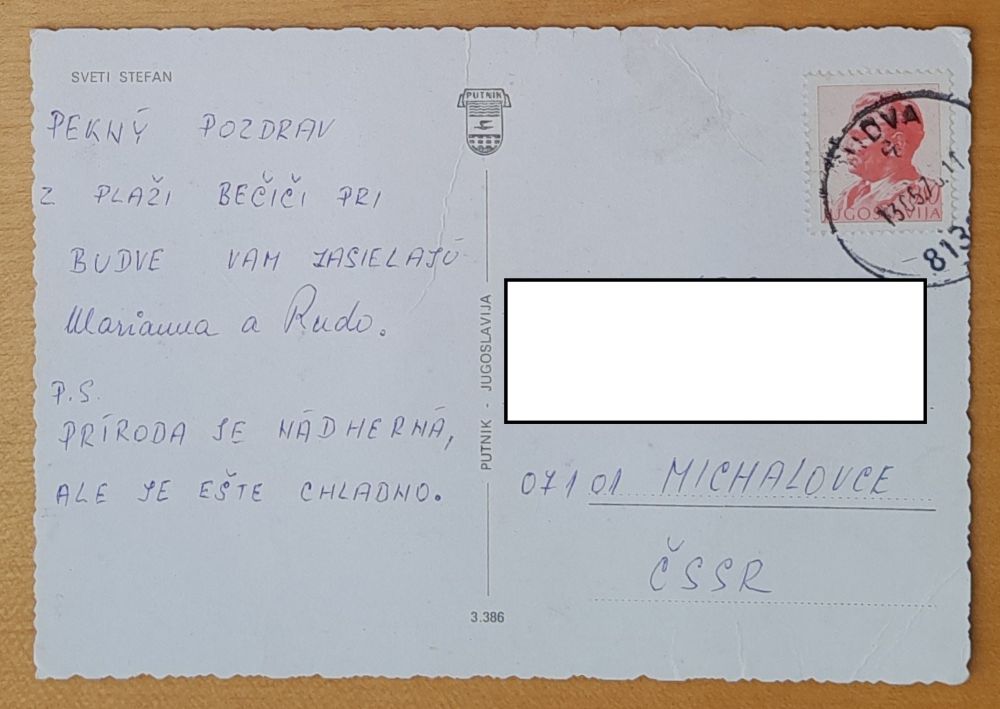 SVETI STEFAN
PEKNÝ POZDRAV
Z PLAŽI BEČIČI PRI
BUDVE VAM ZASIELAJÚ
Marianna a Rudo.
P.S.
PRÍRODA JE NÁDHERNÁ,
ALE JE EŠTE CHLADNO.
PUTNIK
PUTNIK - JUGOSLAVIJA
3.386
JUGOSLAVIJA
BUDVA
813
07101 MICHALOVCE
ČSSR